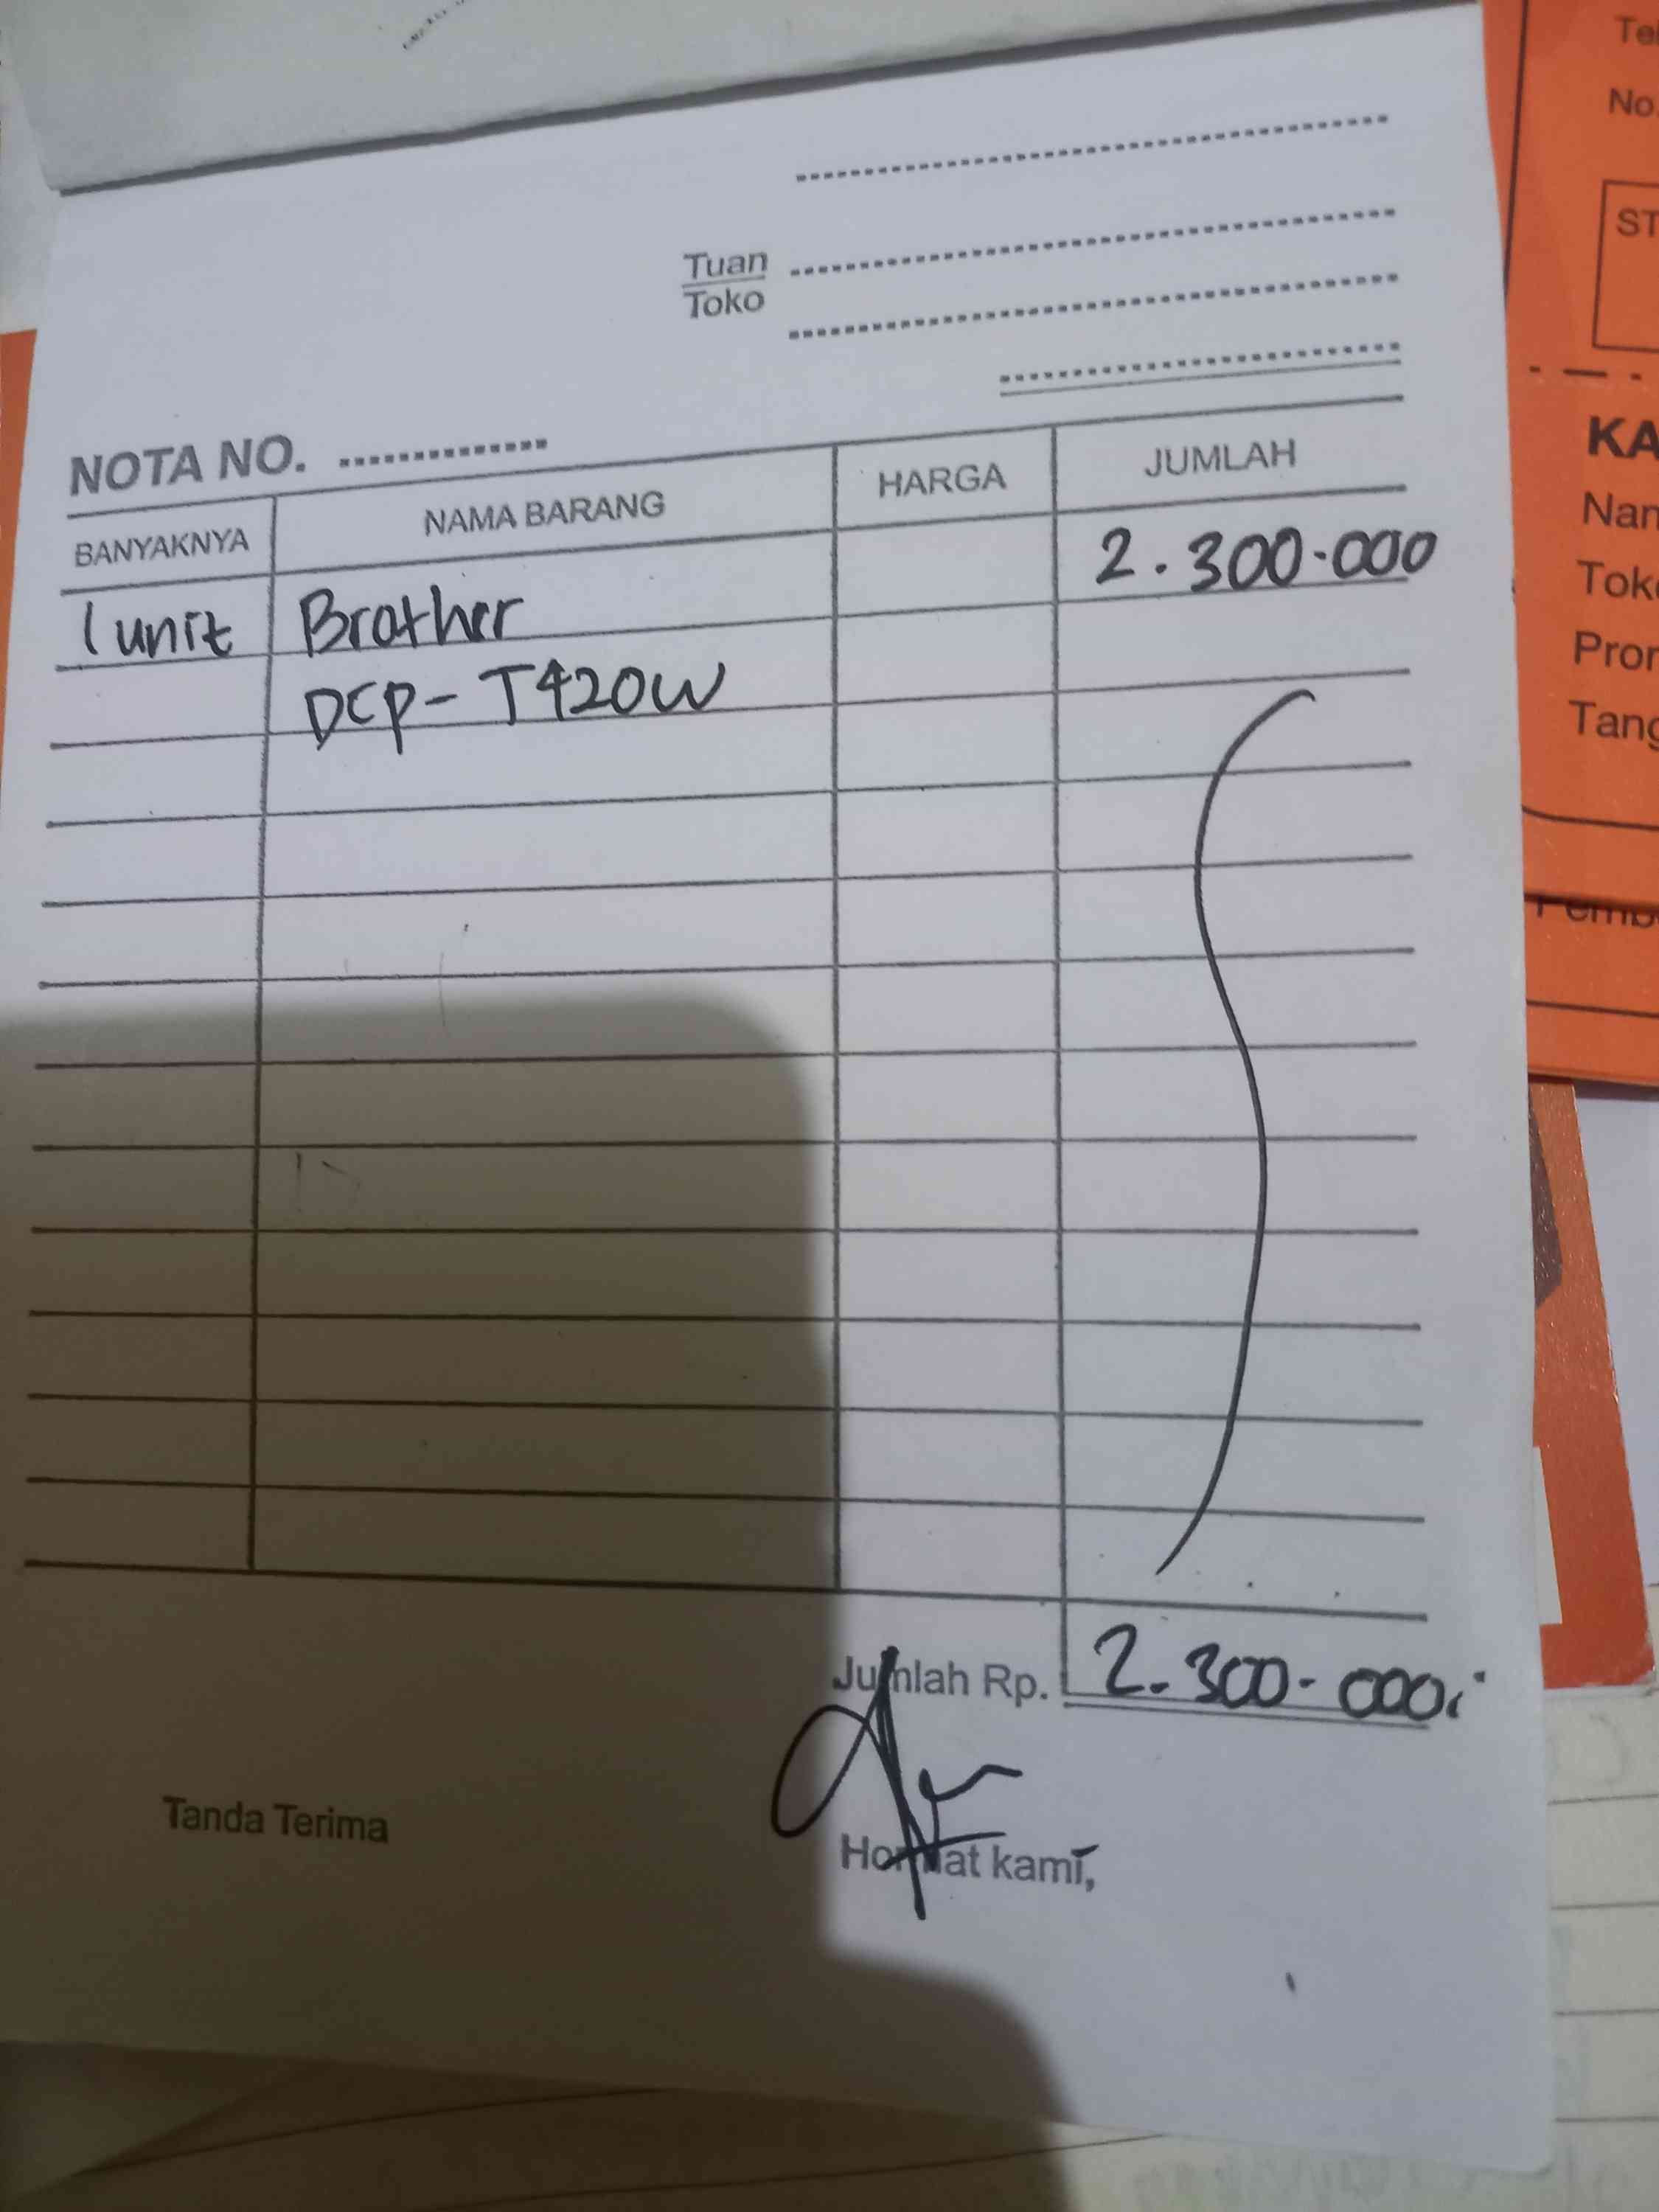 Tuan
Toko
NOTA NO.
BANYAKNYA NAMA BARANG HARGA JUMLAH
1 unit Brother 2.300.000
DCP- T420W
Jumlah Rp. 2.300.000
Tanda Terima
Hormat kami,
No.
KA